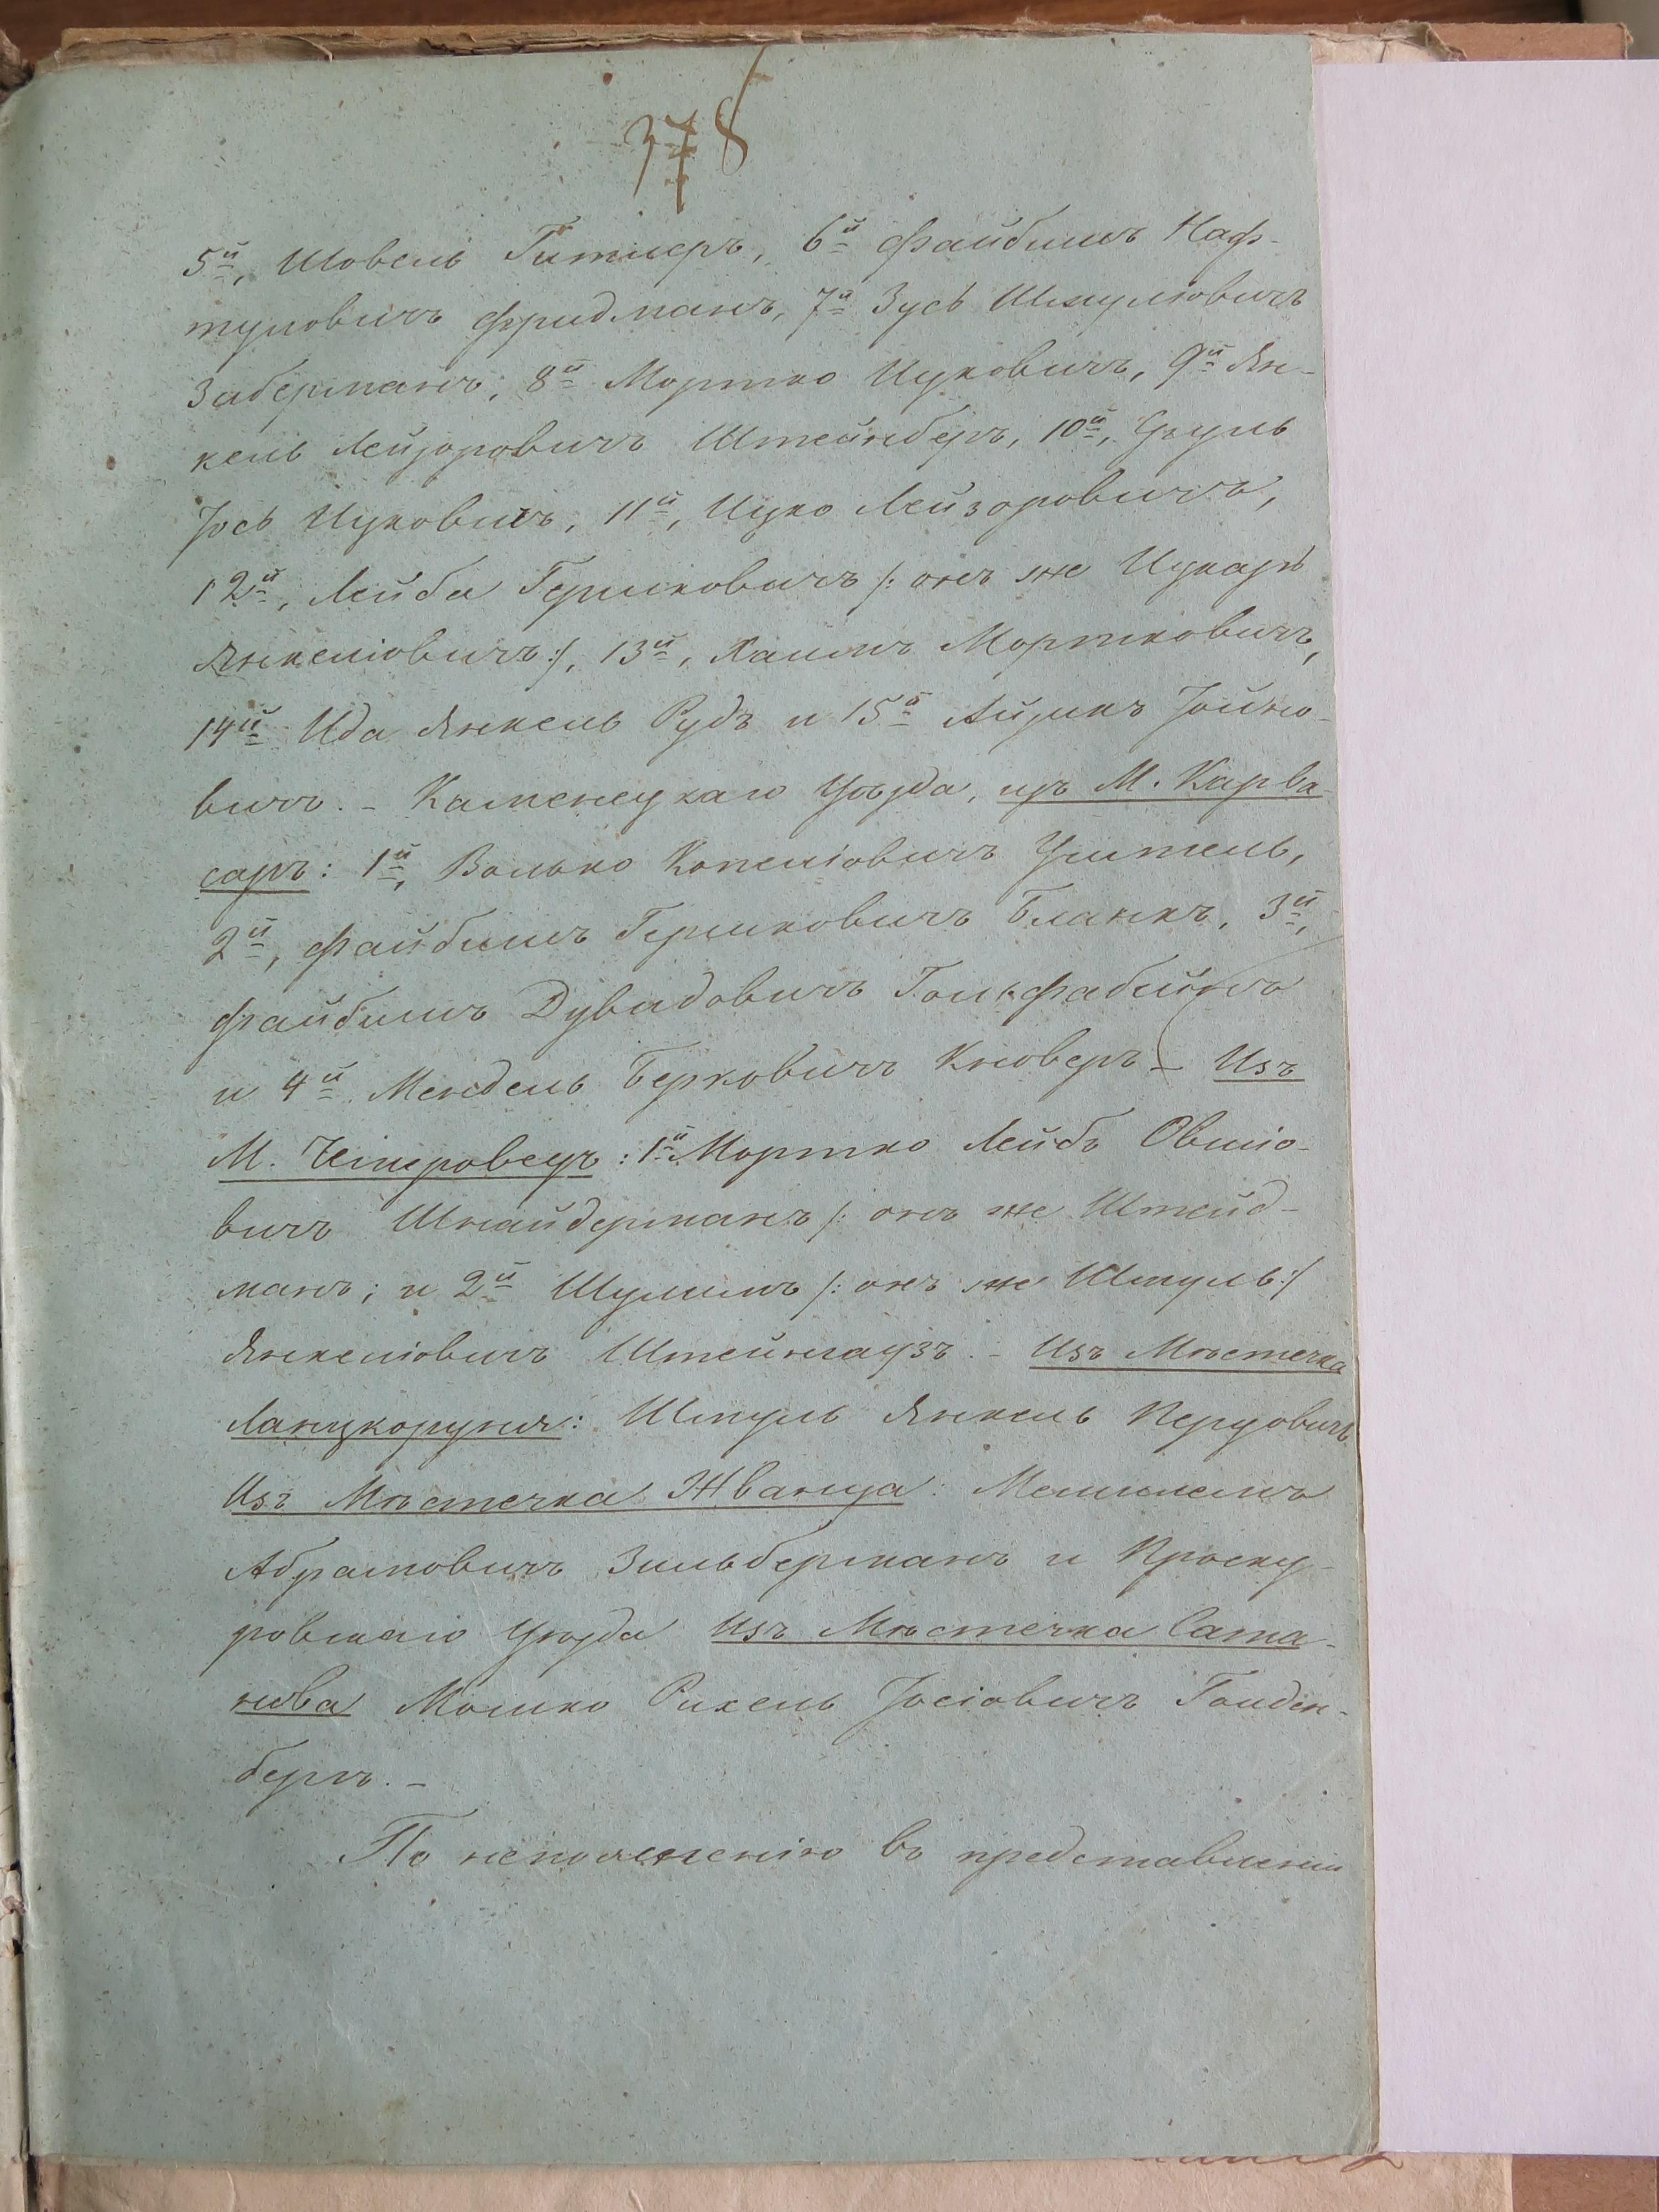 378
5й, Шовель Гитлеръ, 6й Файбишъ Наф-
туловичъ Фридманъ, 7й Зусь Шмулювичъ
Заберманъ; 8й Мортко Ицковичъ, 9й Ян-
кель Лейзоровичъ Штейнберъ, 10й, Сруль
Іось Ицковичъ, 11й, Ицко Лейзоровичъ,
12й, Лейба Гершковичъ /: онъ же Цукаръ
Янкеліовичъ:/, 13й, Хаимъ Мортковичъ,
14й Ида Янкель Рудъ и 15й Айзикъ Іойно-
вичъ. - Каменецкаго Уѣзда, изъ М. Карва-
саръ: 1й, Волько Копеліовичъ Учитель,
2й, Файбишъ Гершковичъ Бланкъ, 3й,
Файбишъ Дувидовичъ
и 4й Мендель Берковичъ Кноверъ - Изъ
М. Чемеровецъ: 1й Мортко Лейбъ Овшіо-
вичъ Шнайдерманъ /: онъ же Штейд-
манъ; и 2й Шулимъ /: онъ же Шмуль:/
Янкеліовичъ Штейнгаузъ. - Изъ Мѣстечка
Ланцкоруня: Шмуль Янкель
Изъ Мѣстечка Жванца: Мешилемъ
Абрамовичъ Зильберманъ и Проску-
ровскаго Уѣзда Изъ Мѣстечка Сата-
нова Мошко Рихель Іосіовичъ Голден-
бергъ. -
По неполученію въ представленіи